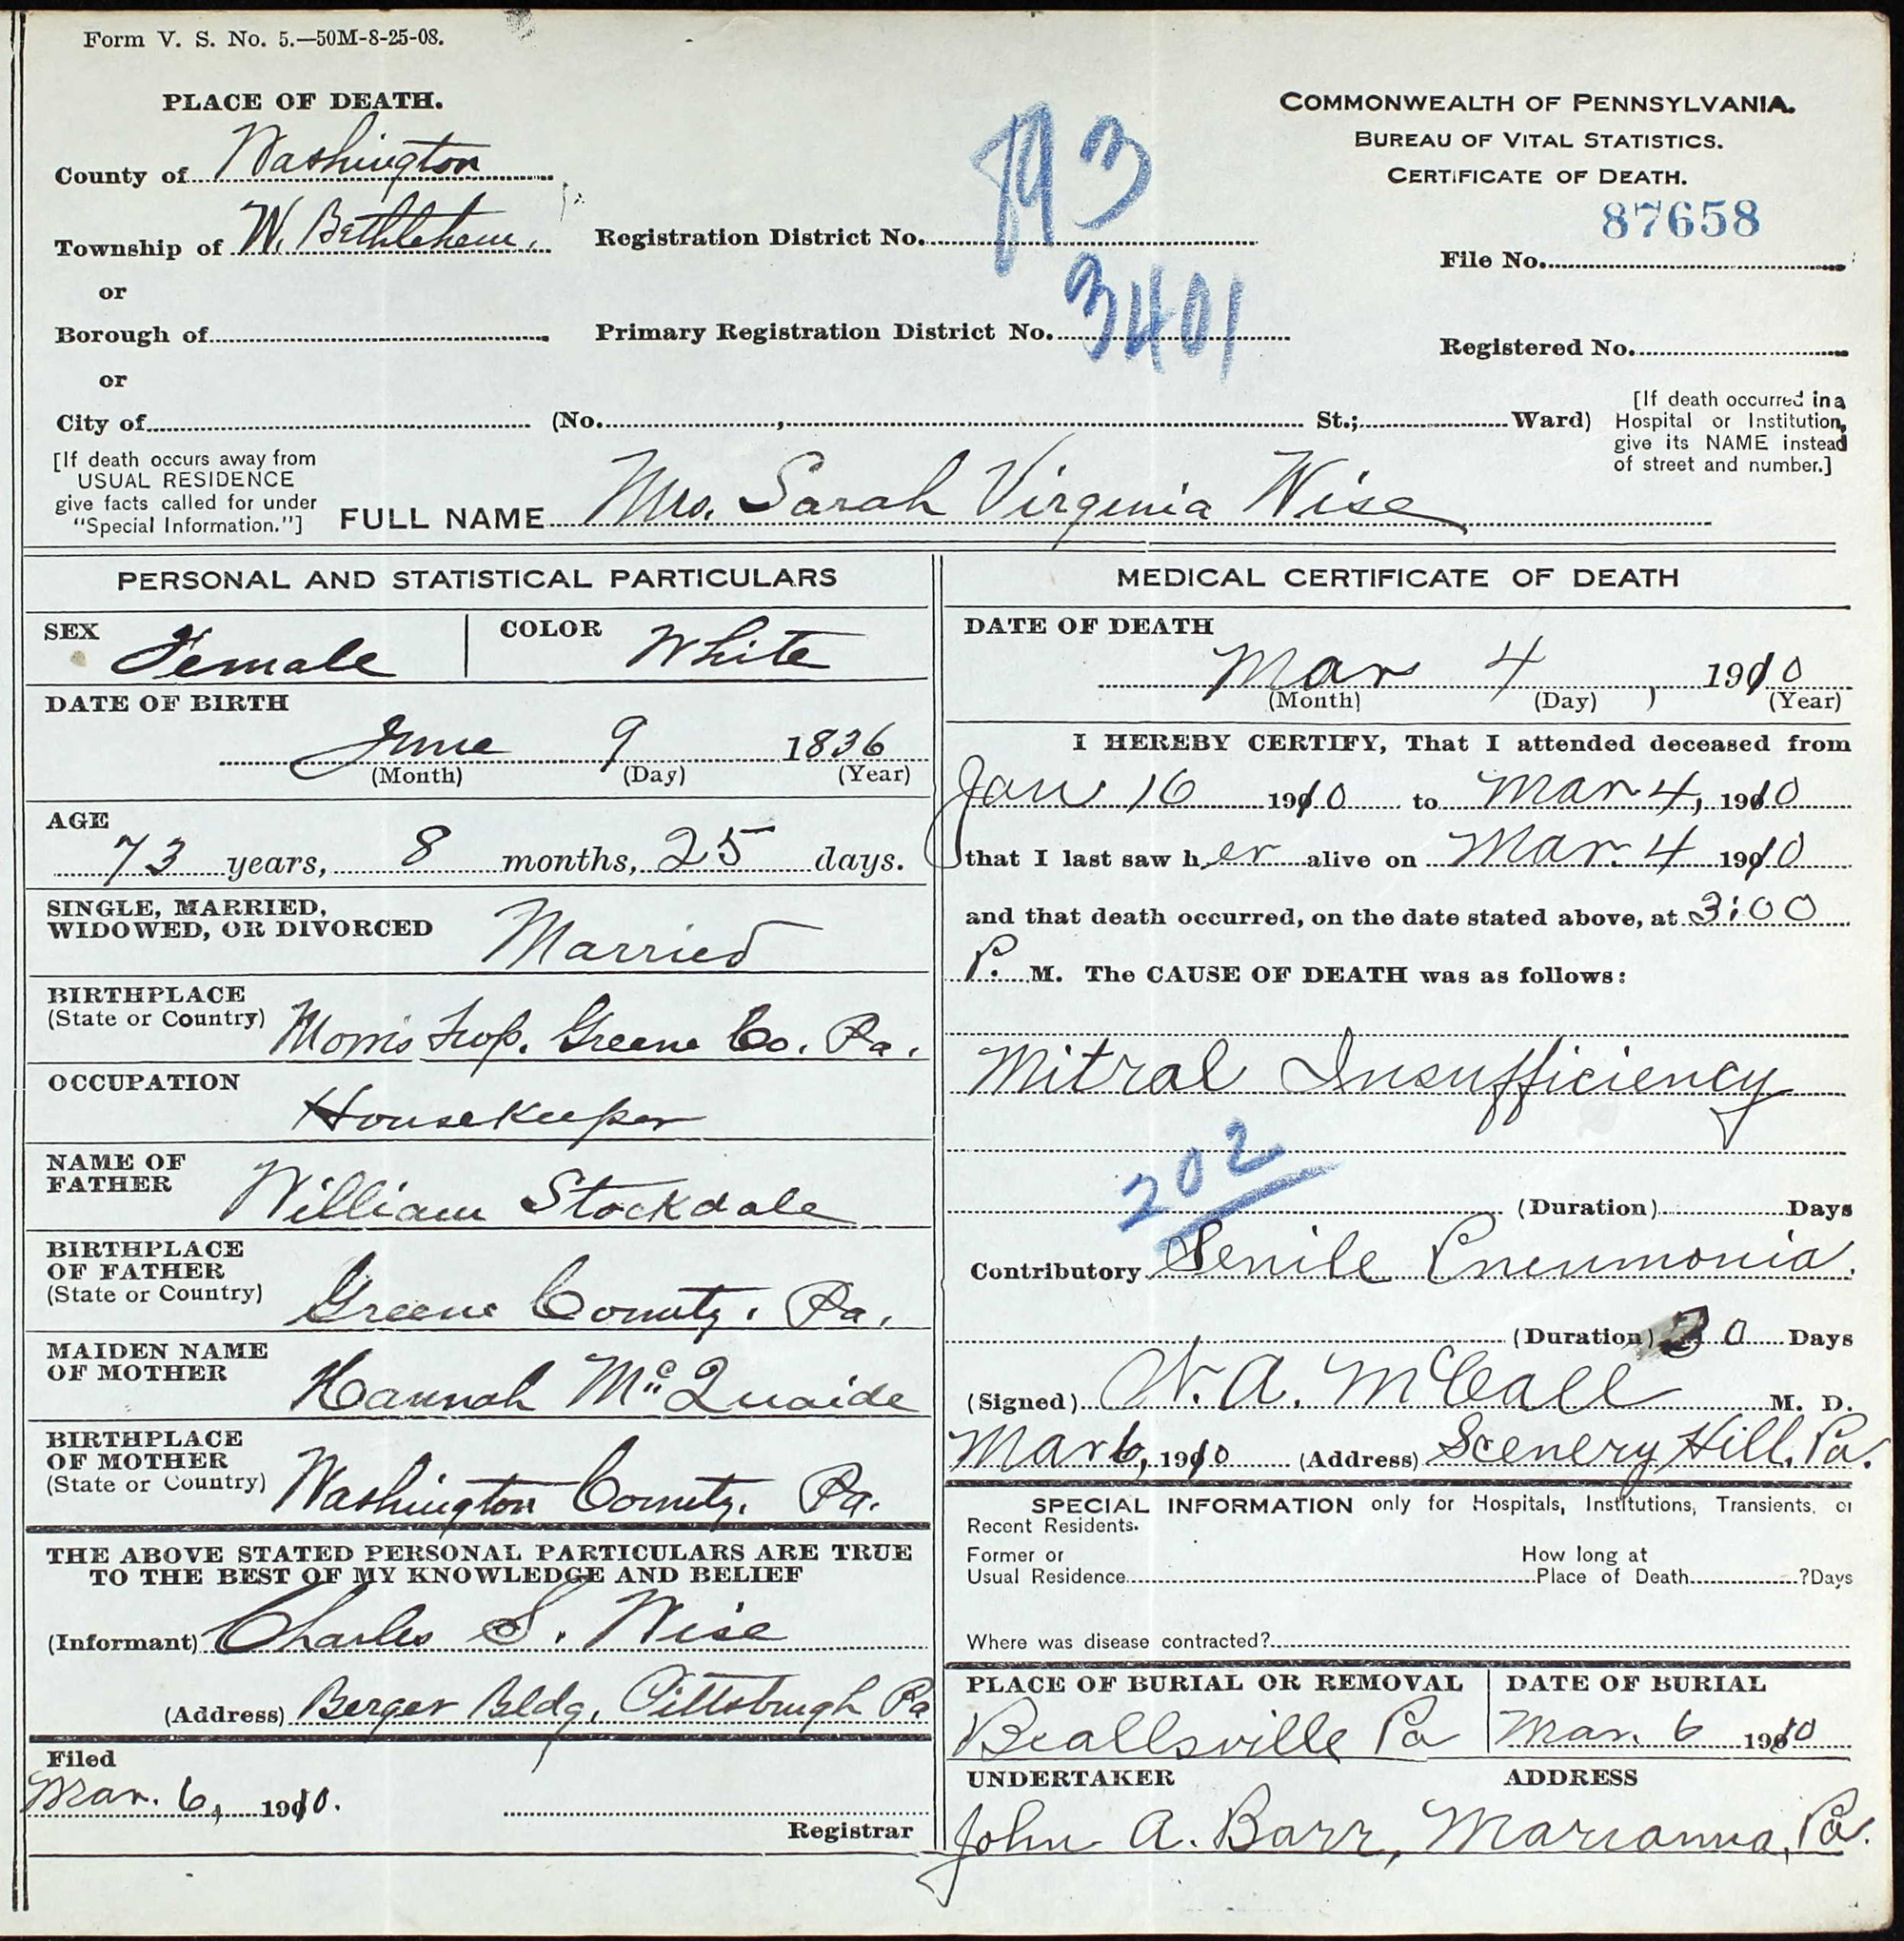 Form V. S. No. 5.—50M-8-25-08.
PLACE OF DEATH.
County of Washington
Township of W. Bethlehem.
or
Borough of
or
City of (No. , St.; Ward)
Registration District No. 893
Primary Registration District No. 3401
COMMONWEALTH OF PENNSYLVANIA.
BUREAU OF VITAL STATISTICS.
CERTIFICATE OF DEATH.
87658
File No.
Registered No.
[If death occurred in a
Hospital or Institution,
give its NAME instead
of street and number.]
[If death occurs away from
USUAL RESIDENCE
give facts called for under
"Special Information."]
FULL NAME Mrs. Sarah Virginia Wise
PERSONAL AND STATISTICAL PARTICULARS
SEX Female
COLOR White
DATE OF BIRTH
June 9 1836
(Month) (Day) (Year)
AGE
73 years, 8 months, 25 days.
SINGLE, MARRIED,
WIDOWED, OR DIVORCED Married
BIRTHPLACE
(State or Country) Morris Twp. Greene Co. Pa.
OCCUPATION
Housekeeper
NAME OF
FATHER William Stockdale
BIRTHPLACE
OF FATHER
(State or Country) Greene County. Pa.
MAIDEN NAME
OF MOTHER Hannah McQuaide
BIRTHPLACE
OF MOTHER
(State or Country) Washington County. Pa.
THE ABOVE STATED PERSONAL PARTICULARS ARE TRUE
TO THE BEST OF MY KNOWLEDGE AND BELIEF
(Informant) Charles S. Wise
(Address) Berger Bldg, Pittsburgh Pa
Filed
Mar. 6, 1910.
Registrar
MEDICAL CERTIFICATE OF DEATH
DATE OF DEATH
Mar 4 , 1910
(Month) (Day) (Year)
I HEREBY CERTIFY, That I attended deceased from
Jan 16 1910 to Mar 4, 1910
that I last saw her alive on Mar. 4 1910
and that death occurred, on the date stated above, at 3:00
P. M. The CAUSE OF DEATH was as follows:
Mitral Insufficiency
202
(Duration) Days
Contributory Senile Pneumonia.
(Duration) 30 Days
(Signed) W. A. McCall M. D.
Mar 6, 1910 (Address) Scenery Hill, Pa.
SPECIAL INFORMATION only for Hospitals, Institutions, Transients, or
Recent Residents.
Former or How long at
Usual Residence Place of Death ?Days
Where was disease contracted?
PLACE OF BURIAL OR REMOVAL
Beallsville Pa
DATE OF BURIAL
Mar. 6 1910
UNDERTAKER ADDRESS
John A. Barr, Marianna, Pa.